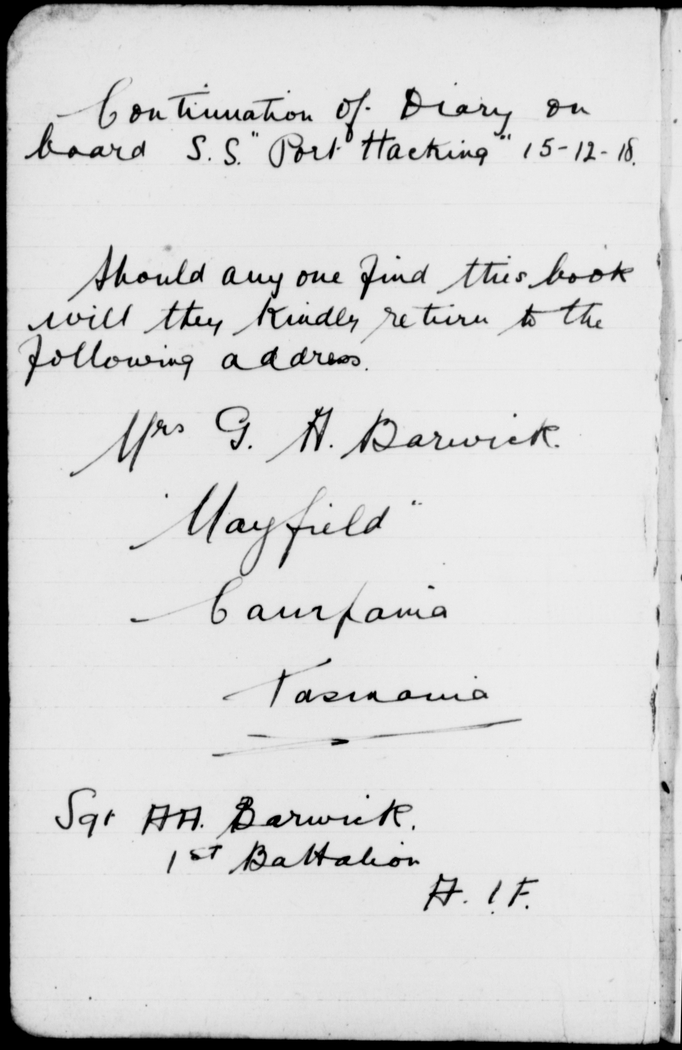 Continuation of Diary on
board S.S. "Port Hacking" 15-12-18.
Should any one find this book
will they kindly return to the
following address.
Mrs G. H. Barwick.
"Mayfield"
Campania
Tasmania
Sgt AA. Barwick.
1st Battalion
A.I.F.